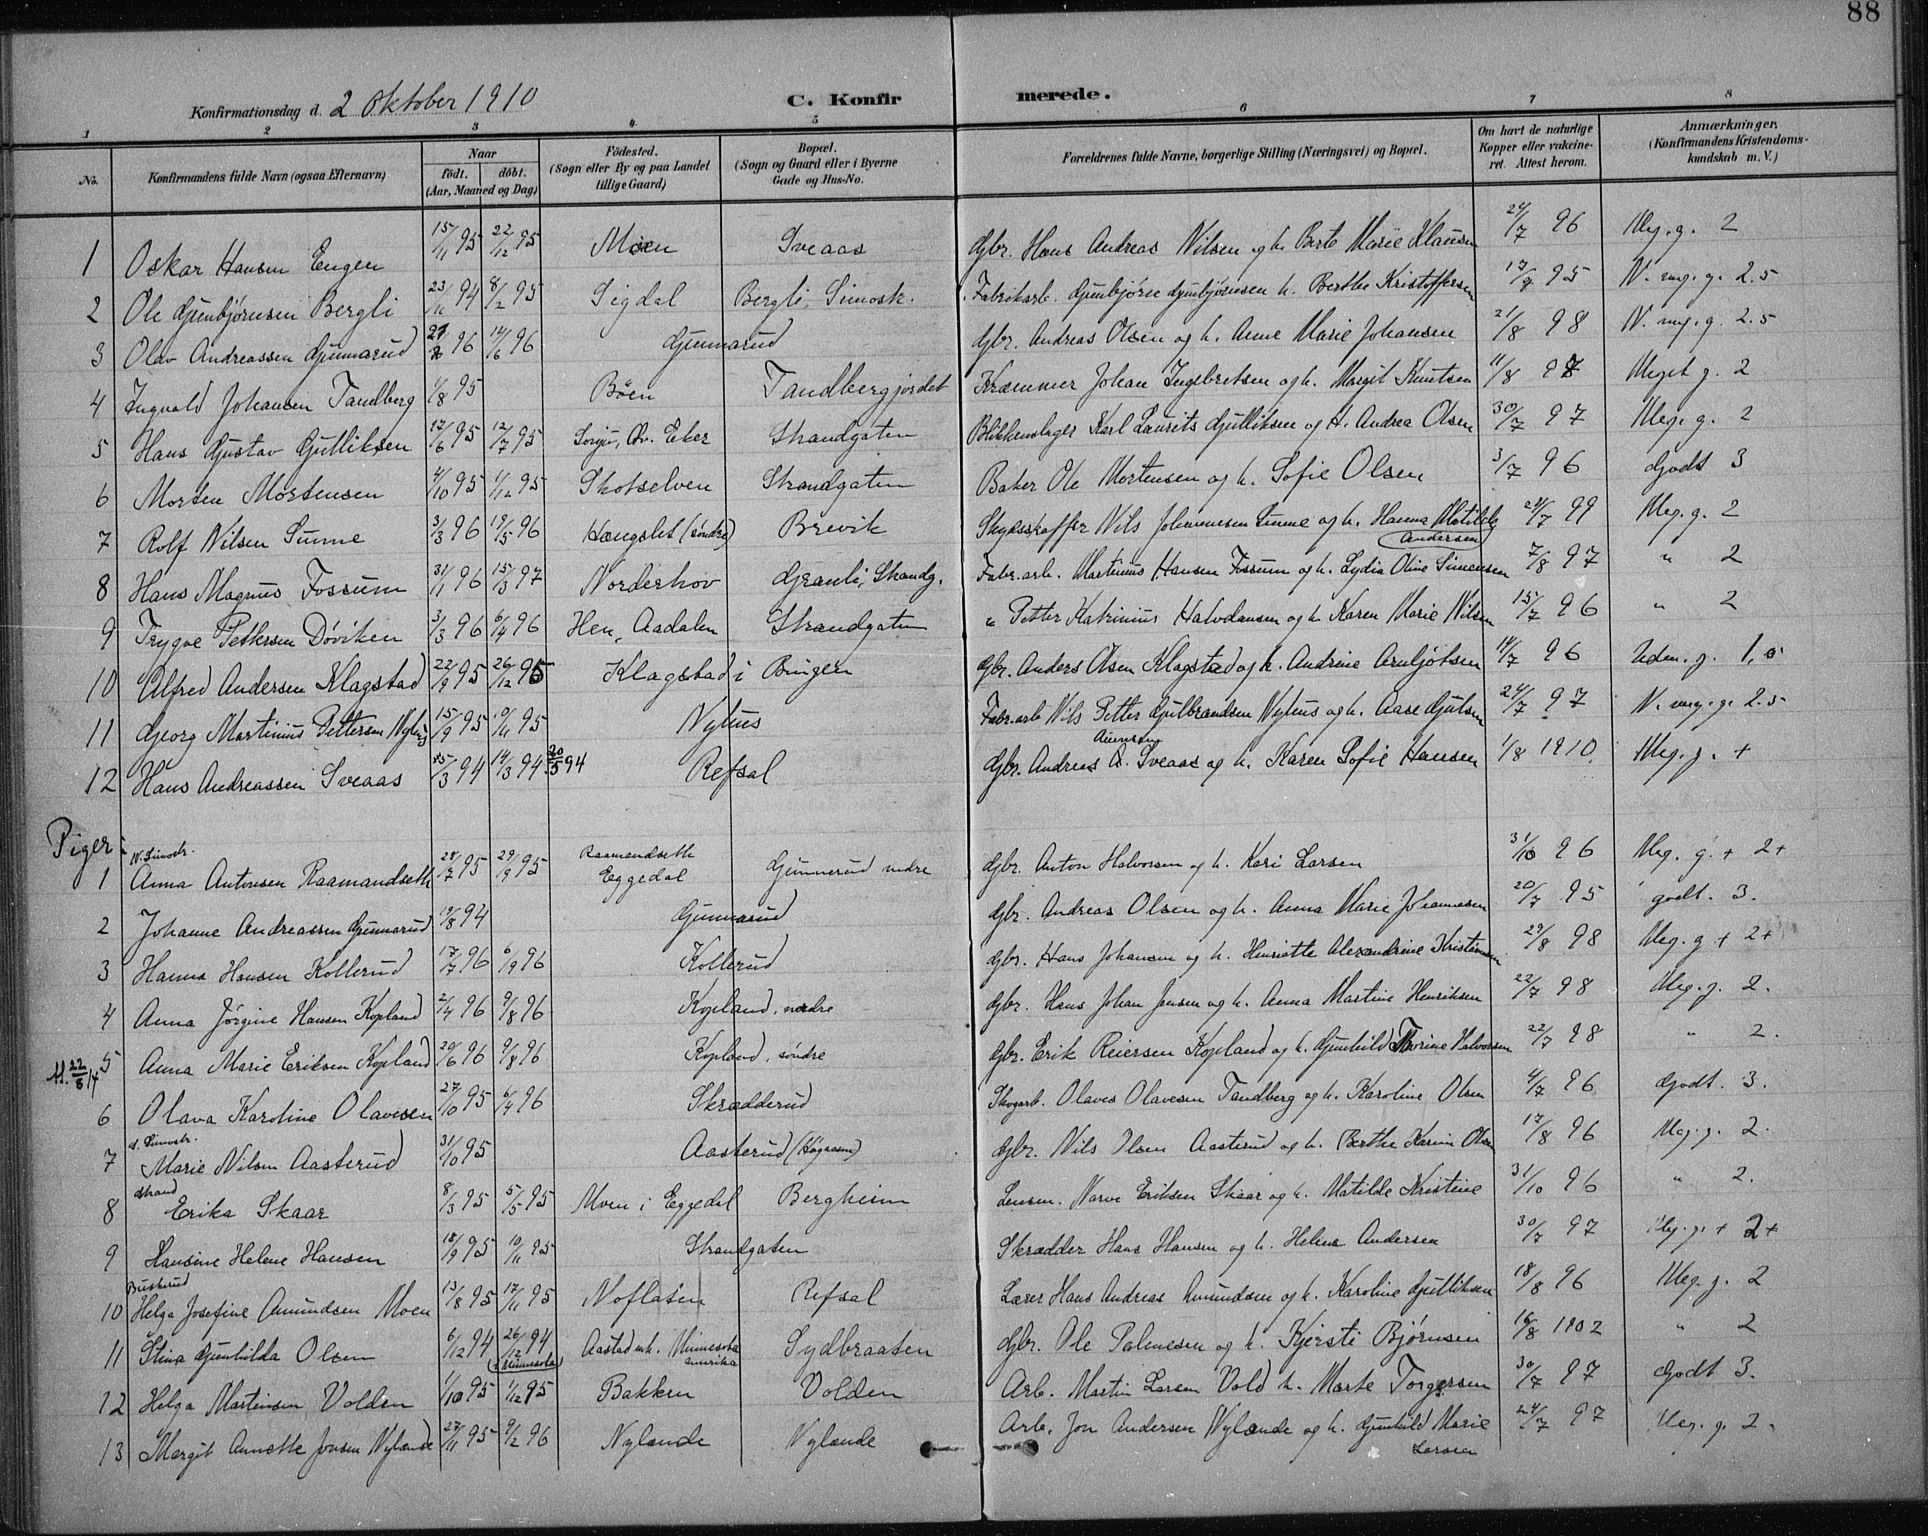 88
Konfirmationsdag d. 2 Oktober 1910 C. Konfirmerede.
1 2 3 4 5 6 7 8
No. Konfirmandens fulde Navn (ogsaa Efternavn) Naar født. døbt. (Aar, Maaned og Dag) Fødested. (Sogn eller By og paa Landet tillige Gaard) Bopæl. (Sogn og Gaard eller i Byerne Gade og Hus-No. Forældrenes fulde Navne, borgerlige Stilling (Næringsvei) og Bopæl. Om havt de naturlige Kopper eller vakcineret. Attest herom. Anmærkninger. (Konfirmandens Kristendomskundskab m. V.)
1 Oskar Hansen Engen 15/11 95 22/12 95 Moen Sveaas Gbr. Hans Andreas Nilsen og h. Berte Marie Klausen 24/7 96 Meg. g. 2
2 Ole Gunbjørnsen Bergli 23/11 94 8/2 95 Sigdal Bergli, Simosk. Fabrikarb. Gunbjørn Gunbjørnsen h. Berthe Kristoffersen 95 N. mg. g. 2.5
3 Olav Andreassen Gunnarud 96 14/6 96 Gunnarud Gbr. Andreas Olsen og h. Anne Marie Johansen 21/8 98 N. mg. g. 2.5
4 Ingvald Johansen Tandberg 1/8 95 Böen Tandbergjordet Kræmmer Johan Ingebretsen og h. Margit Knutsen 11/8 98 Meget g. 2
5 Hans Gustav Gulliksen 17/6 95 12/7 95 Øv. Eker Strandgaten Blikkenslager Karl Laurits Gulliksen og h. Andrea Olsen 30/7 97 Meg. g. 2
6 Morten Mortensen 4/10 95 1/12 95 Skotselven Strandgaten Baker Ole Mortensen og h. Sofie Olsen 3/7 96 Godt 3
7 Rolf Nilsen Sunne 3/3 96 19/5 96 Hængslet (søndre) Brevik Skydsskaffer Nils Johannesen Sunne og h. Hanna Matilde Andersen 24/7 99 Meg. g. 2
8 Hans Magnus Fossum 31/1 96 15/3 97 Norderhov Granli, Strandg. Fabr. arb. Martinius Hansen Fossum og h. Lydia Oline Simensen 7/8 97 " 2
9 Trygve Pettersen Døviken 3/3 96 6/4 96 Hen, Aadalen Strandgaten " Petter Katrinius Halvdansen og h. Karen Marie Nilsen 15/7 96 " 2
10 Alfred Andersen Klagstad 22/9 95 26/12 95 Klagstad i Bingen Gbr. Anders Olsen Klagstad og h. Andrine Arnljøtsen 14/7 96 Uden. g. 1,5
11 Georg Martinius Pettersen Nyhus 15/9 95 10/11 95 Nyhus Fabr. arb Nils Petter Gulbrandsen Nyhus og h. Aase Gulsen 24/7 97 N. meg. g. 2.5
12 Hans Andreassen Sveaas 25/3 94 14/3 94 20/5 94 Refsal Gbr. Andreas A. Sveaas og h. Karen Sofie Hansen 1/8 1910. Meg. g. +
Piger:
1 N. Simostr. Anna Antonsen Raamandseth 28/7 95 29/9 95 Raamandseth Eggedal Gunnerud nedre Gbr. Anton Halvorsen og h. Kari Larsen 31/10 96 Meg. g. + 2+
2 Johanne Andreassen Gunnarud 19/8 94 Gunnarud Gbr. Andreas Olsen og h. Anna Marie Johannesen 20/7 95 godt. 3.
3 Hanna Hansen Kollerud 17/7 96 6/9 96 Kollerud Gbr. Hans Johansen og h. Henriette Alexandrine Kristiansen 29/8 98 Meg. g + 2+
4 Anna Jørgine Hansen Kopland 2/4 96 9/8 96 Kopland, nedre Gbr. Hans Johan Jensen og h. Anna Martine Henriksen 22/7 98 Meg. g. 2.
5 Anna Marie Eriksen Kopland 20/6 96 9/8 96 Kopland, søndre Gbr. Erik Reiersen Kopland og h. Gunhild Torine Halvorsen 22/7 98 " 2.
M. 22/5 14
6 Olava Karoline Olavesen 27/10 95 6/4 96 Skrædderud Skogarb. Olaves Olavesen Tandberg og h. Karoline Olsen 4/7 96 Godt. 3.
7 s. Simostr. Marie Nilsen Aasterud 31/10 95 Aasterud (Høgaasen) Gbr. Nils Olsen Aasterud og h. Berthe Karine Olsen 17/8 96 Meg. g. 2.
8 Strand Erika Skaar 8/3 95 5/5 95 Moen i Eggedal Bergheim Lensm. Narve Eriksen Skaar og h. Matilde Kristine 31/10 96 " 2.
9 Hansine Helene Hansen 18/9 95 10/11 95 Strandgaten Skrædder Hans Hansen og h. Helene Andersen 30/7 97 Meg. g. + 2+
10 Buskerud Helga Josefine Amundsen Moen 13/8 95 17/11 95 Noflaten Refsal Lærer Hans Andreas Amundsen og h. Karoline Gulliksen 18/8 96 Meg. g. 2
11 Stina Gunhilda Olsen 6/12 94 26/12 94 (i Minnesota) Aastad mk. Minnesota Amerika Sydbraaten Gbr. Ole Palmesen og h. Kjersti Bjørnsen 16/8 1902 " 2
12 Helga Martinsen Volden 1/10 95 1/12 95 Bakken Volden Arb. Martin Larsen Vold h. Marte Torgersen 30/7 97 Godt 3.
13 Margit Annette Jonsen Nylænde 27/11 95 9/2 96 Nylænde Nylænde Arb. Jon Andersen Nylænde og h. Gunhild Marie Larsen 24/7 97 Meg. g. 2.